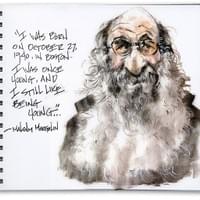 "I WAS BORN
ON OCTOBER 27,
1940, IN BOSTON.
I WAS ONCE
YOUNG, AND
I STILL LIKE
BEING
YOUNG..."
—MALCOLM MARGOLIN